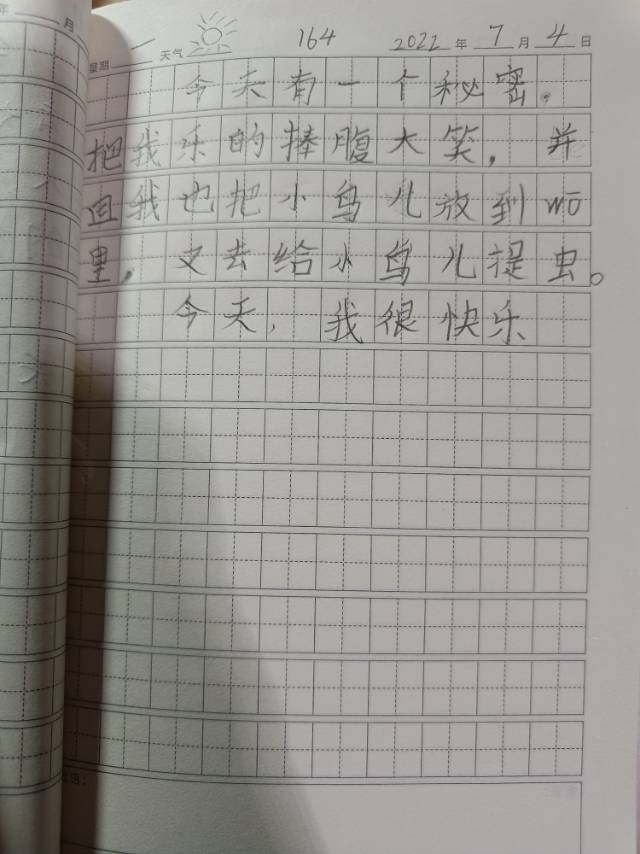 年 月
星期 一 天气 164 2022 年 7 月 4 日
今天有一个秘密。
把我乐的捧腹大笑, 并
且我也把小鸟儿放到wō
里, 又去给小鸟儿捉虫。
今天, 我很快乐